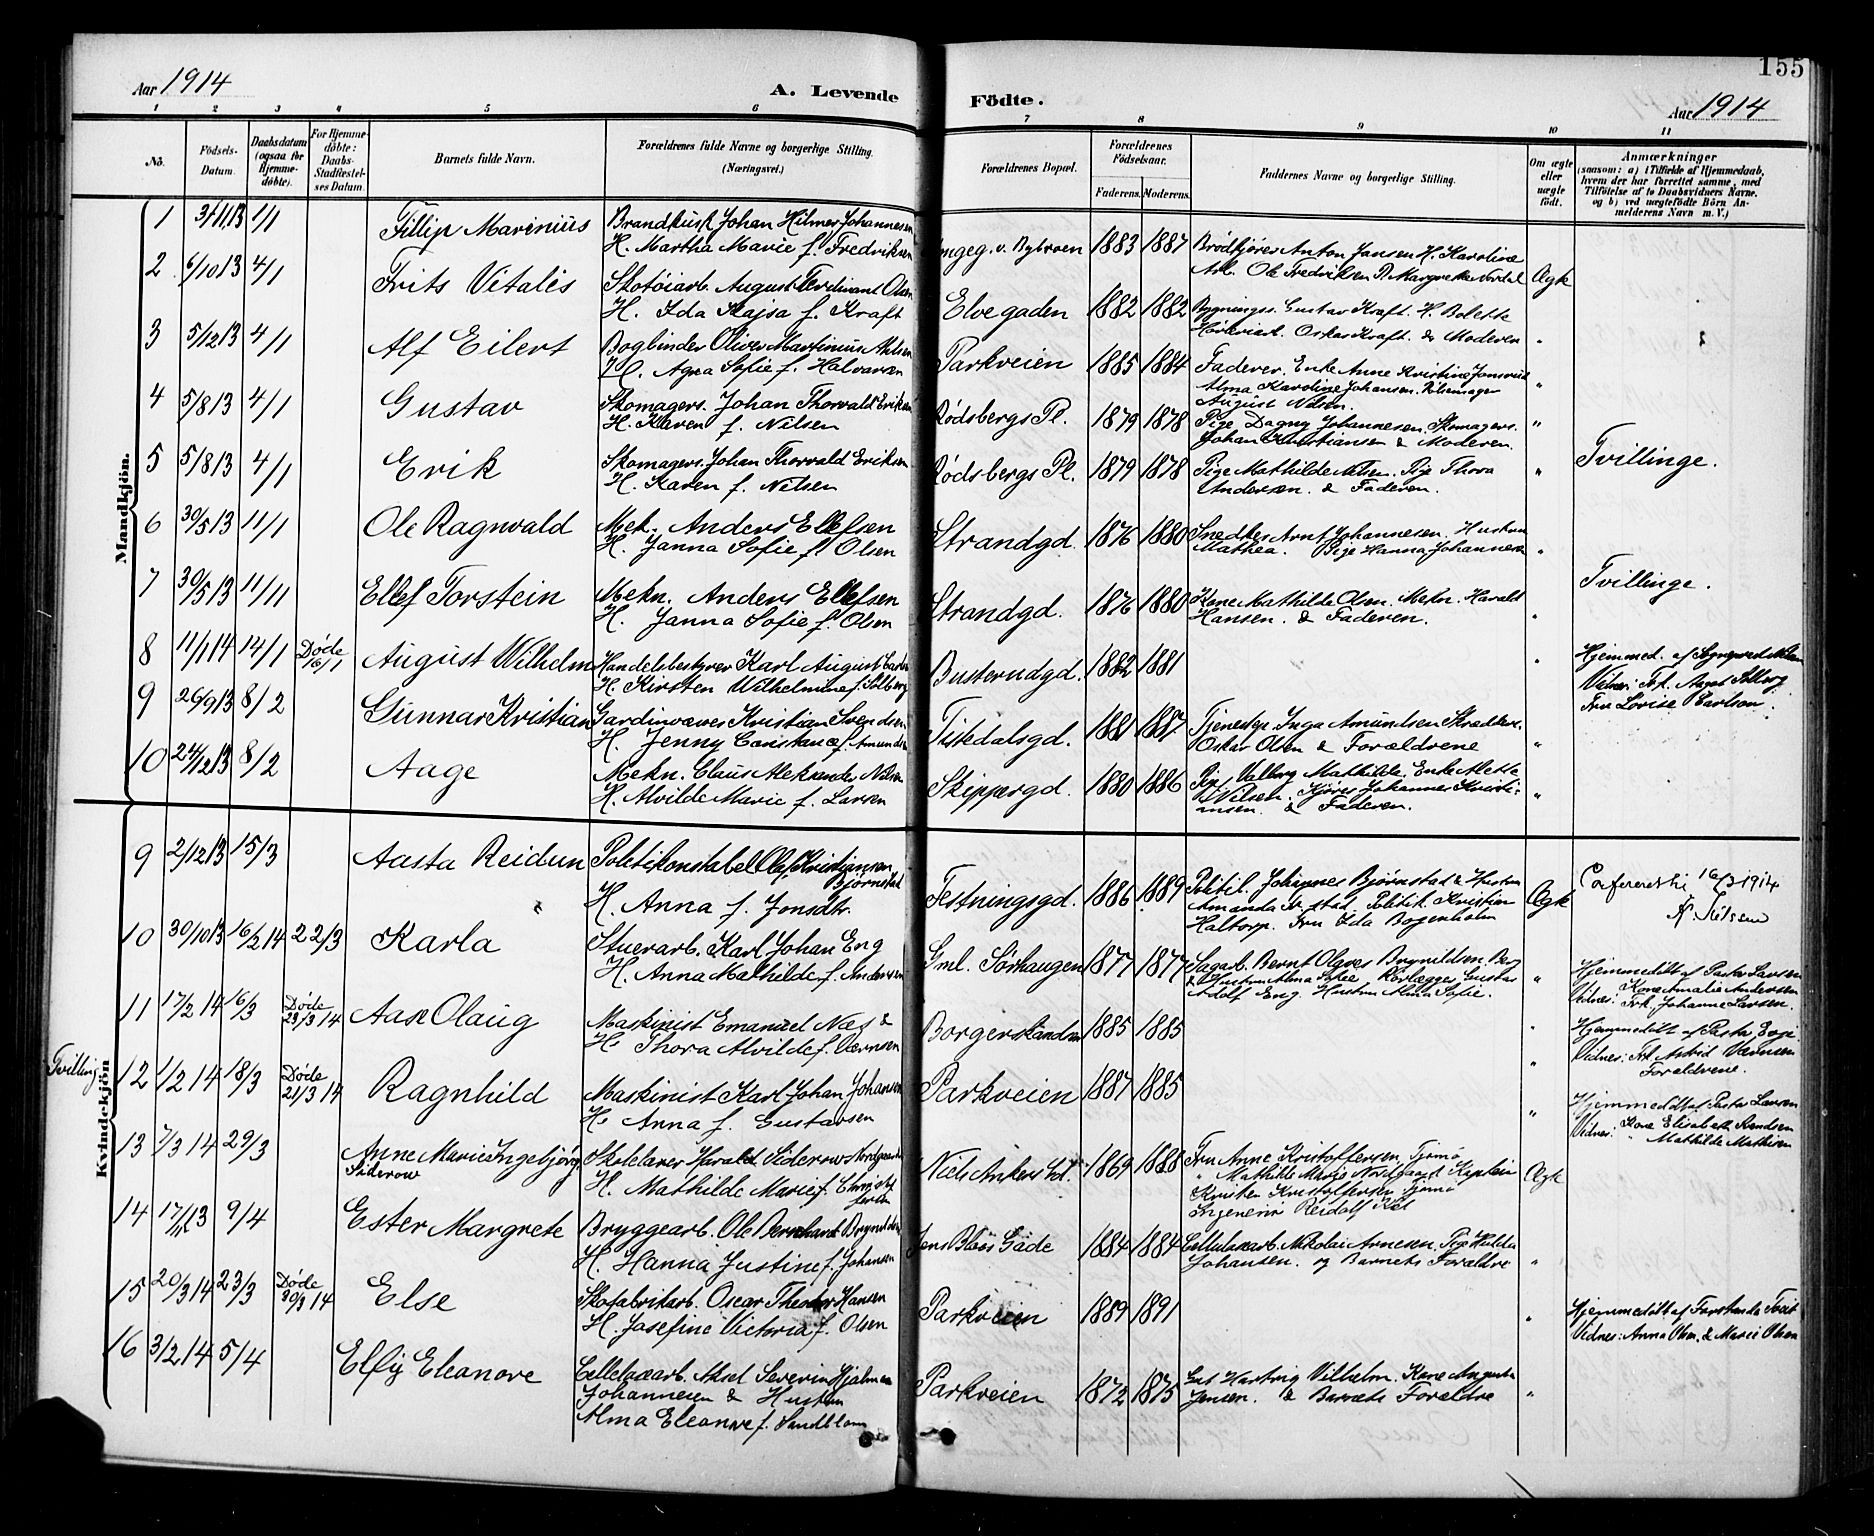 155
Aar 1914
A. Levende Födte.
Aar 1914
1 2 3 4 5 6 7 8 9 10 11
No.
Födsels-Datum.
Daabsdatum (ogsaa for Hjemme-döbte).
For Hjemme-döbte: Daabs-Stadfæstel-ses Datum.
Barnets fulde Navn.
Forældrenes fulde Navne og borgerlige Stilling. (Næringsvei.)
Forældrenes Bopæl.
Forældrenes Födselsaar.
Faderens. Moderens.
Faddernes Navne og borgerlige Stilling.
Om ægte eller uægte födt.
Anmærkninger
(saasom: a) i Tilfælde af Hjemmedaab, hvem der har forrettet samme, med Tilföielse af to Daabsvidners Navne. og b) ved uægtefödte Börn Anmelderens Navn m. V.)
Mandkjön.
1 3/11 13 4/1 Fillip Marinius Brandkusk Johan Hilmer Johannesen
H. Martha Marie f. Fredriksen
v. Bybroen 1883 1887 Brødkjører Anton Jansen H. Karoline
Arb. Ole Fredriksen P. Margrethe Nordal Ægte
2 6/10 13 4/1 Frits Vitalis Skotøiarb. August Ferdinant Olsen
H. Ida Kajsa f. Kraft
Elvegaden 1882 1882 Bygningss. Gustav Kraft. H. Bolette
Oskar Kraft. & Moderen "
3 5/12 13 4/1 Alf Eilert Bogbinder Oliver Martinius Nilsen
H. Agna Sofie f. Halvorsen
Parkveien 1885 1884 Faderen, Enke Anne Kristine
Alma Karoline Johansen.
August Nilsen. "
4 5/8 13 4/1 Gustav Skomagers. Johan Thorvald Eriksen
H. Karen f. Nilsen
Rødsbergs Pl. 1879 1878 Pige Dagny Johannesen. Skomagers.
Johan Kristiansen & Moderen. "
5 5/8 13 4/1 Erik Skomagers. Johan Thorvald Eriksen
H. Karen f. Nilsen
Rødsbergs Pl. 1879 1878 Pige Mathilde Nilsen. Pige Thora
Andersen. & Faderen. " Tvillinge.
6 30/5 13 11/1 Ole Ragnvald Mek. Anders Ellefsen
H. Janna Sofie f. Olsen
Strandgd. 1876 1880 Snedker Arnt Johannesen. Hustru
Mathea. Pige Hanna Johannesen "
7 30/5 13 11/11 Ellef Torstein Mekn. Anders Ellefsen
H. Janna Sofie f. Olsen
Strandgd. 1876 1880 Kone Mathilde Olsen. Mekn. Harald
Hansen. & Faderen. " Tvillinge.
8 11/1 14 14/1 Døde 16/1 August Wilhelm Handelsbestyrer Karl August
H. Kirsten Wilhelmine f. Solberg
Busterudgd. 1882 1881 " Hjemmed. af Sognepræst Nilsen
Vidner: Frk. Aagot Solberg
Fru Lovise Carlson.
9 26/9 13 8/2 Gunnar Kristian Gardinvæver Kristian Svendsen
H. Jenny Constance f. Amundsen
Tistedalsgd. 1881 1887 Tjenestpe. Inga Amundsen
Oskar Olsen & Forældrene "
10 24/12 13 8/2 Aage Mekn. Claus Aleksander Nilsen
H. Alvilde Marie f. Larsen
Skippergd. 1880 1886 Pige Valborg Mathilde. Enke Alette
Nilsen. Kjører Johannes Kristi-
ansen & Faderen. "
Kvindekjön
9 2/12 13 15/3 Aasta Reidun Politikonstabel Olaf Kristiansen
Bjørnstad
H. Anna f. Jonsdtr.
Festningsgd. 1886 1889 Politik. Johannes Bjørnstad & Hustru
Amanda Politik. Kristian
Haltorp. Fru Ida Bogenholm Ægte Confereret til 16/3 1914
Nilsen
10 30/10 13 16/2 14 22/3 Karla Stuerarb. Karl Johan Eng
H. Anna Mathilde f. Andersen
Gml. Sørhaugen 1877 1877 Sagarb. Bernt Olaves Brynildsen Berg
& Hustru Alma Sofie Rørlægger Gustav
Adolf Eng. Hustru Alma Sofie. " Hjemmedøbt af Pastor Larsen
Vidnes: Kone Amalie Andersen
Frk. Johanne Larsen.
11 17/2 14 16/3 Døde 23/3 14 Aase Olaug Maskinist Emanuel Næs &
H. Thora Alvilde f. Værnsen
Borgerskandsen 1885 1885 " Hjemmedøbt af Pastor
Vidnes: Frk. Astrid Værnsen
Forældrene.
Tvilling 12 1/2 14 18/3 Døde 21/3 14 Ragnhild Maskinist Karl Johan Johansen
H. Anna f. Gustavsen
Parkveien 1887 1885 " Hjemmedøbt af Pastor Larsen
Vidnes: Kone Elisabeth Knudsen
" Mathilde Mathisen
13 7/3 14 29/3 Anne Marie Ingebjørg
Siderow
Skolelærer Harald Siderow Nordgaarden
H. Mathilde Marie f. Christof-
fersen
Niels Ankers Gd. 1869 1888 Fru Anne Kristoffersen, Tjømø
" Mathilde Marie Nordgaard Kaptein
Kristen Kristoffersen Tjømø
Ingeniør Reidolf Ægte
14 17/11 13 9/4 Ester Margrete Bryggearb. Ole Bernhard Brynildsen
H. Hanna Justine f. Johansen
Jens Bloös Gade 1884 1884 Cellulosearb. Nikolai Arnesen. Pige Hulda
Johansen. og Barnets Forældre "
15 20/3 14 23/3 Døde 30/3 14 Else Skofabrikarb. Oscar Theodor Hansen
H. Josefine Victoria f. Olsen
Parkveien 1889 1891 " Hjemmedøbt af
Vidnes: Anna Olsen & Marie Olsen
16 3/2 14 5/4 Elfy Eleanore Cellulosearb. Aksel Severin Hjalmar
Johannesen & Hustru
Alma Eleanore f. Sandblom
Parkveien 1872 1875 Hartvig Vilhelm. Kone Augusta
Jensen. & Barnets Forældre "